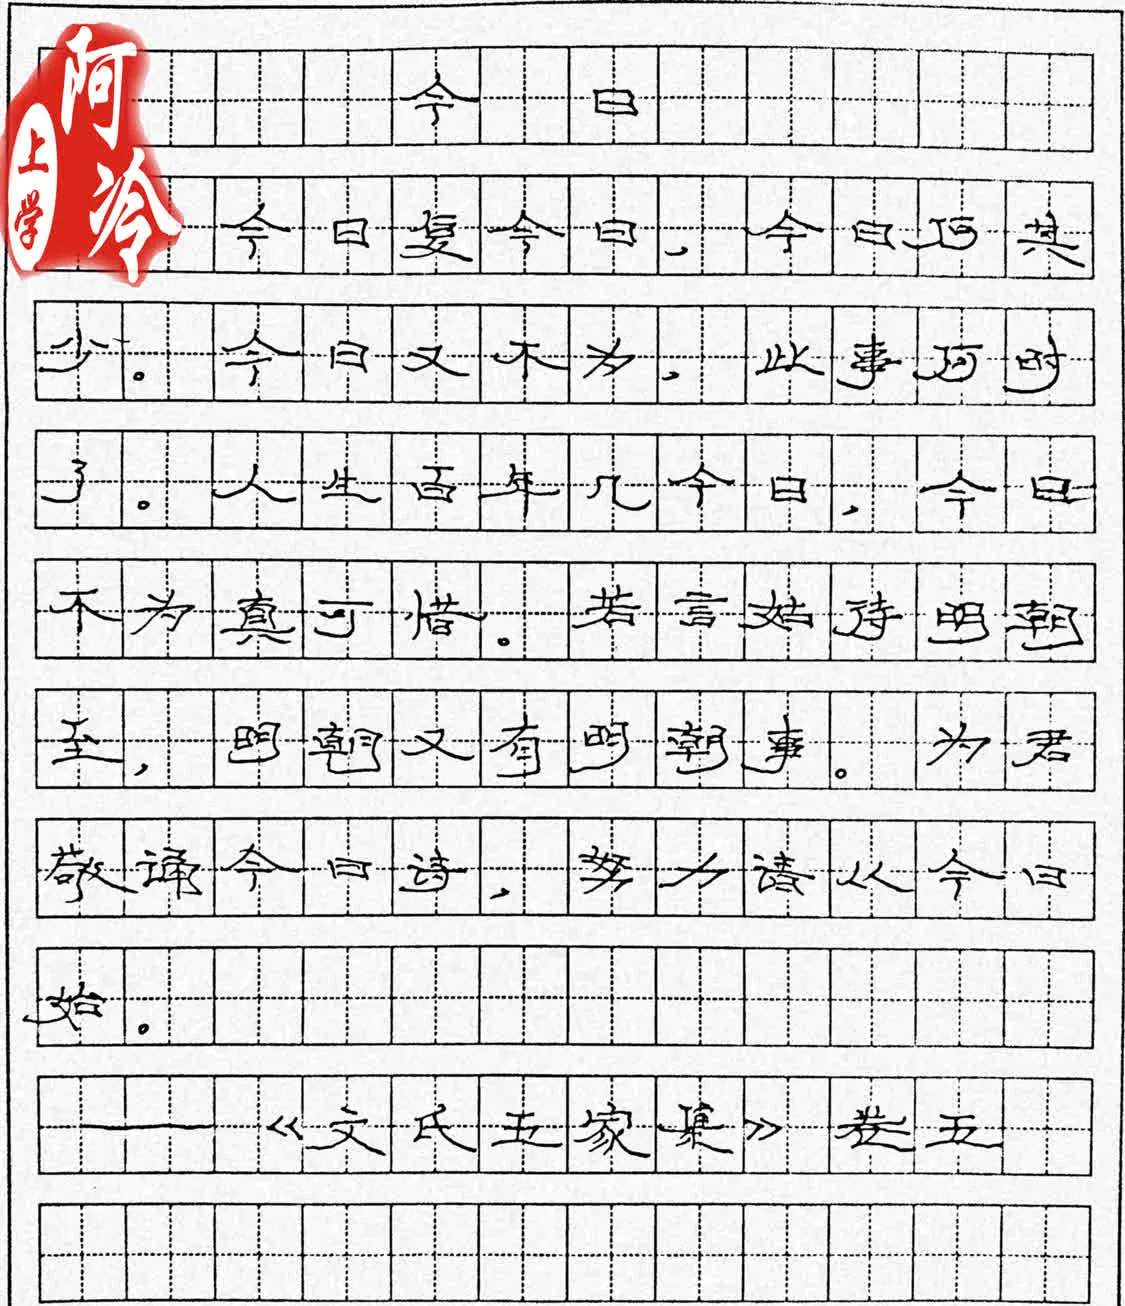 阿冷
上学
今日
今日复今日，今日何其
少。今日又不为，此事何时
了。人生百年几今日，今日
不为真可惜。若言姑待明朝
至，明朝又有明朝事。为君
敬诵今日诗，努力请从今日
始。
——《文氏五家集》卷五